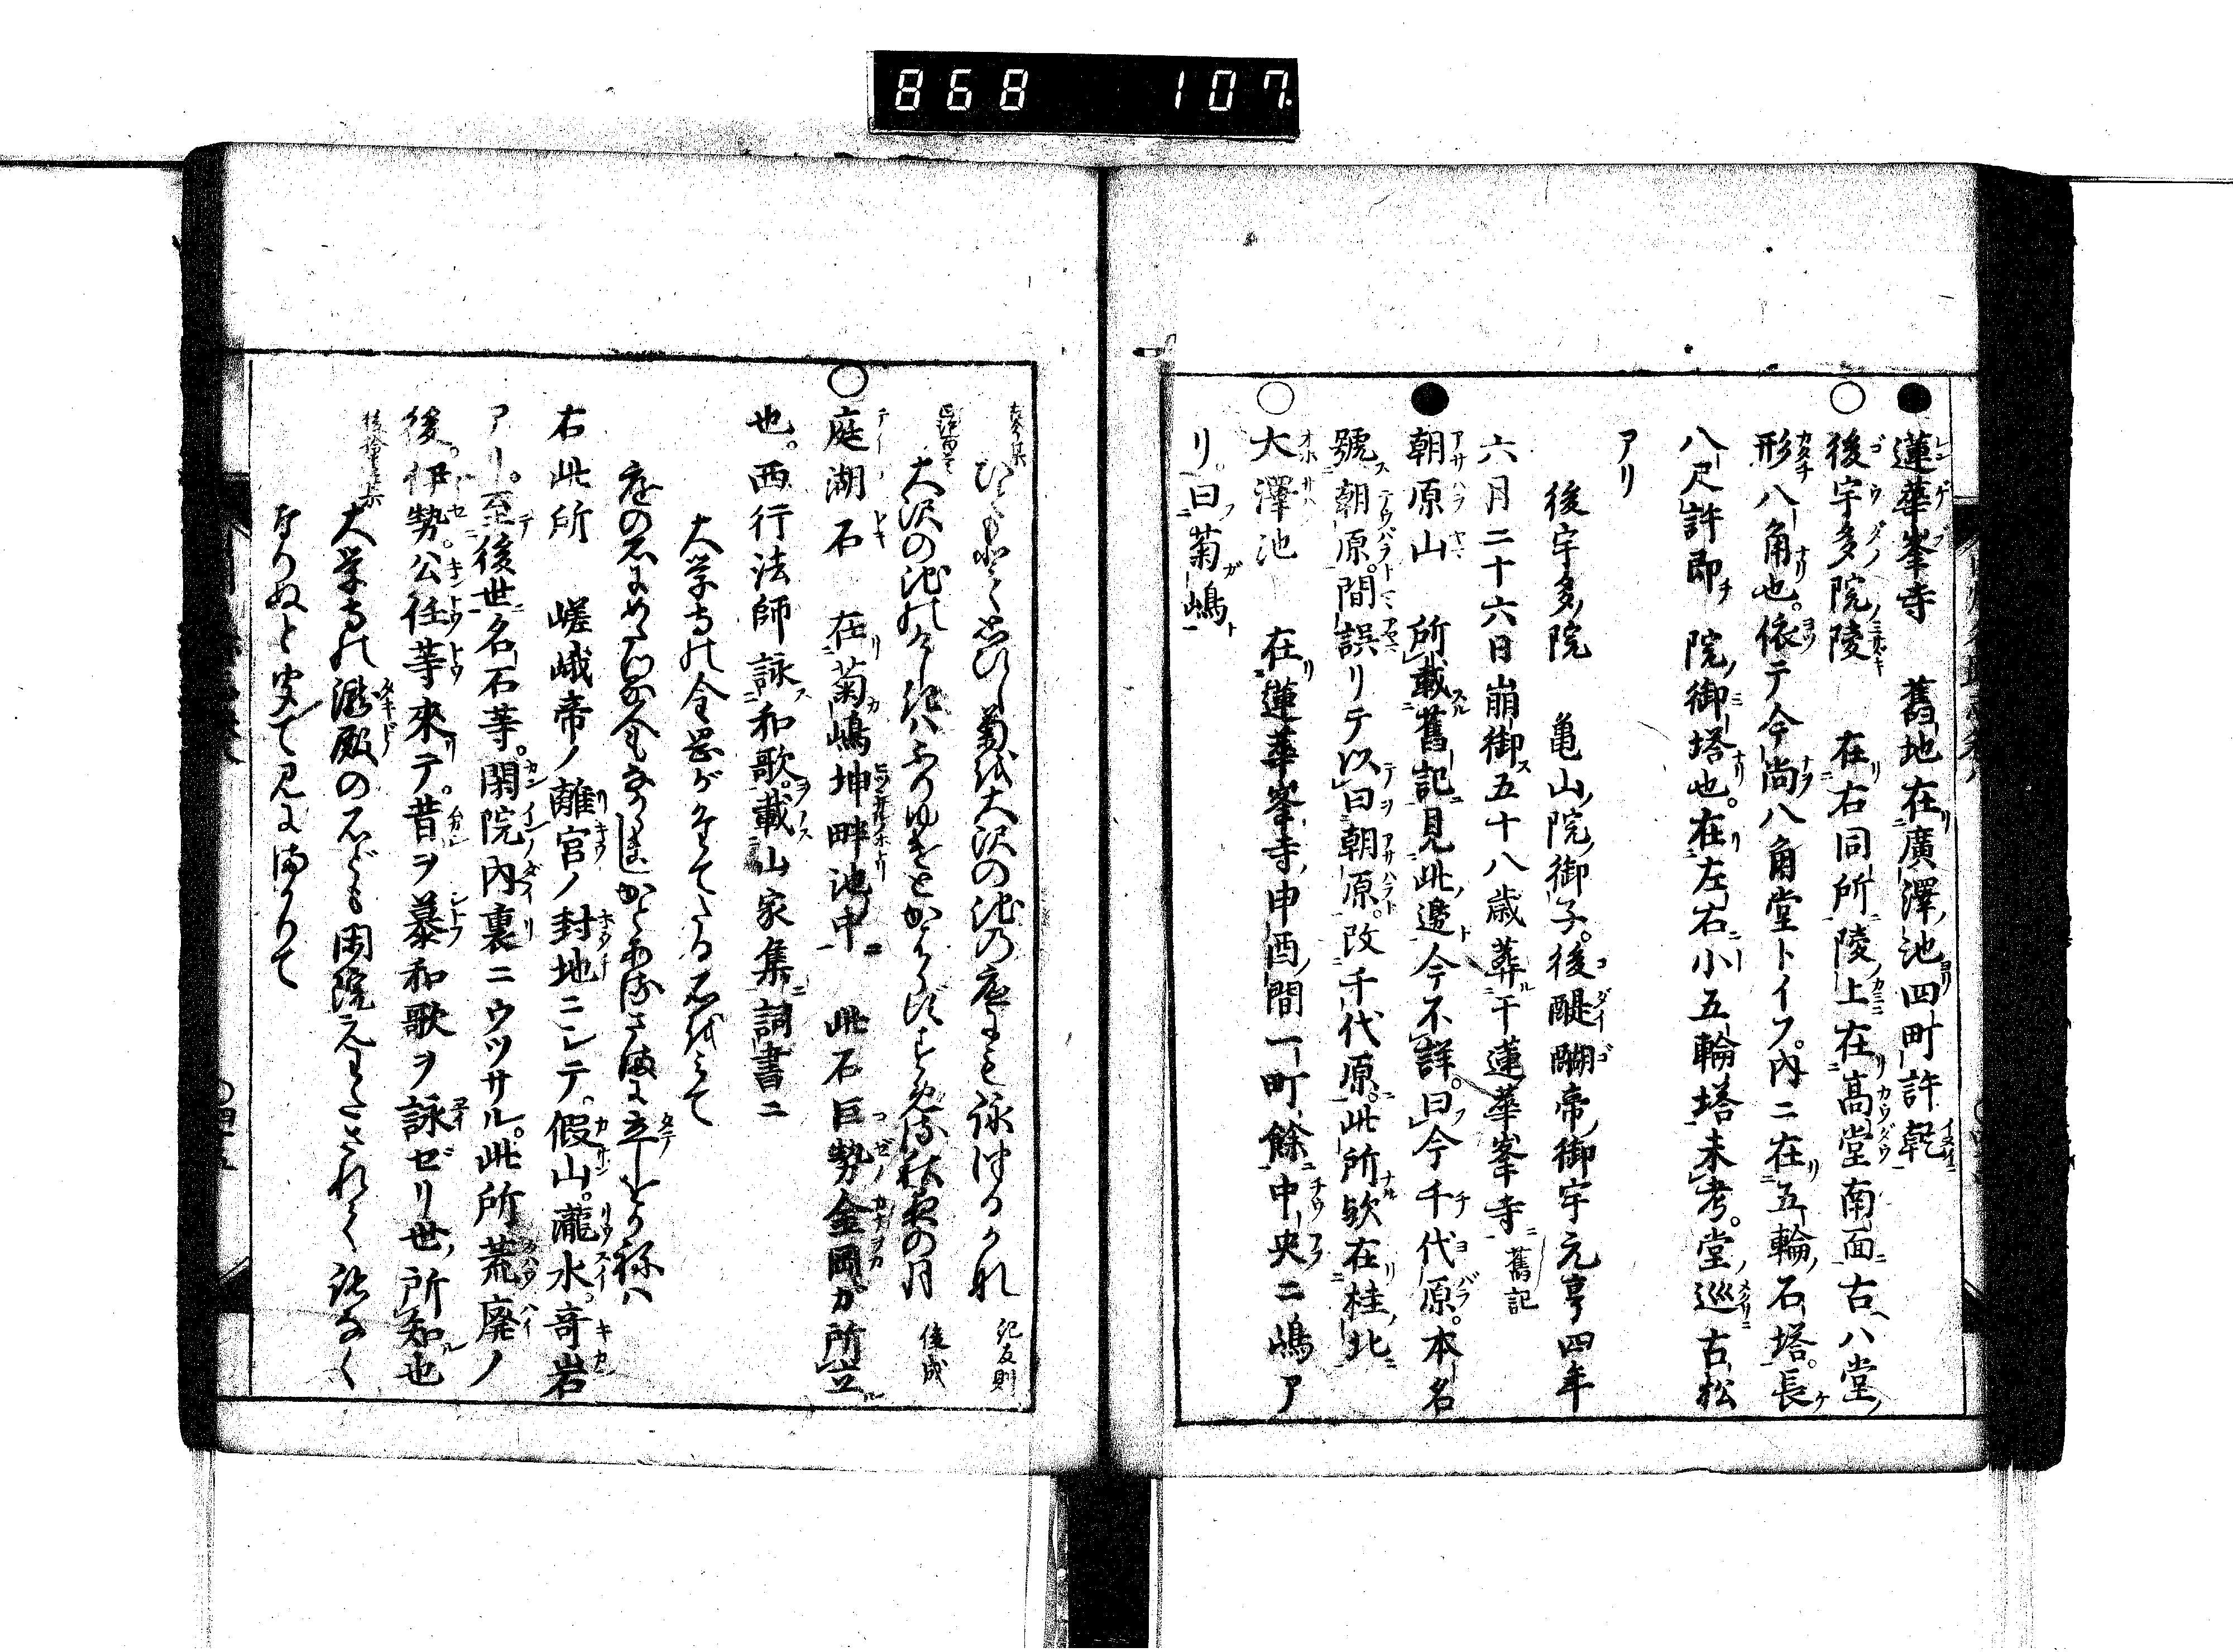 868 107
●蓮華峯寺 舊地在廣澤池四町許乾
○後宇多院陵 在右同所陵上在髙堂南面古ハ堂
形八角也。依テ今尚八角堂トイフ。内ニ在五輪石塔。長
八尺許即 院御塔也。在左右小五輪塔未考。堂巡古松
アリ
後宇多院 亀山院御子。後醍醐帝御宇元亨四年
六月二十六日崩御五十八歳葬于蓮華峯寺 舊記
●朝原山 所載舊記見此邊今不詳。曰今千代原。本名
號朝原。間誤リテ以曰朝原。改千代原。此所欤在桂北
○大澤池 在蓮華峯寺申酉間一町餘中央ニ嶋ア
リ。曰菊嶋
古今集
ひともとと思ひし菊を大沢の池の底にも誰かうゑけん 紀友則
大沢の池のけしきはふりゆけどかはらずすめる秋の月 俊成
○庭湖石 在菊嶋坤畔池中 此石巨勢金岡ガ所立
也。西行法師詠和歌。載山家集詞書ニ
大学寺の金岡がたてたる石を見て
庭の石にめたつる人もなからましかとあるさまに立しおかねは
右此所 嵯峨帝ノ離宮ノ封地ニシテ。假山。瀧水。奇岩
アリ。至後世名石等。閑院内裏ニウツサル。此所荒廃ノ
後。伊勢。公任等來テ。昔ヲ慕和歌ヲ詠ゼリ世所知也
後拾遺集
大学寺の瀧殿の石ども閑院にうつされて跡なく
なりぬと聞て見にまかりて